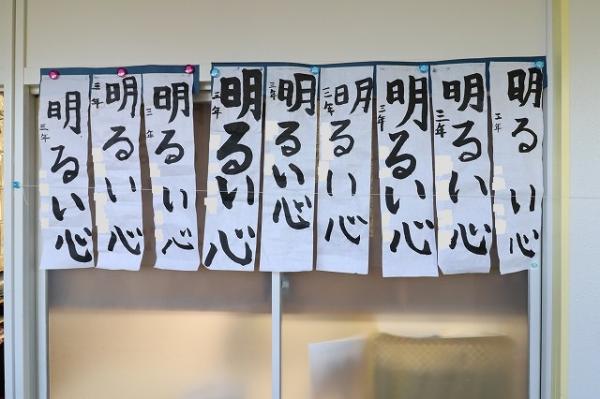 明るい心
三年
明るい心
三年
明るい心
三年
明るい心
三年
明るい心
三年
明るい心
三年
明るい心
三年
明るい心
三年
明るい心
三年